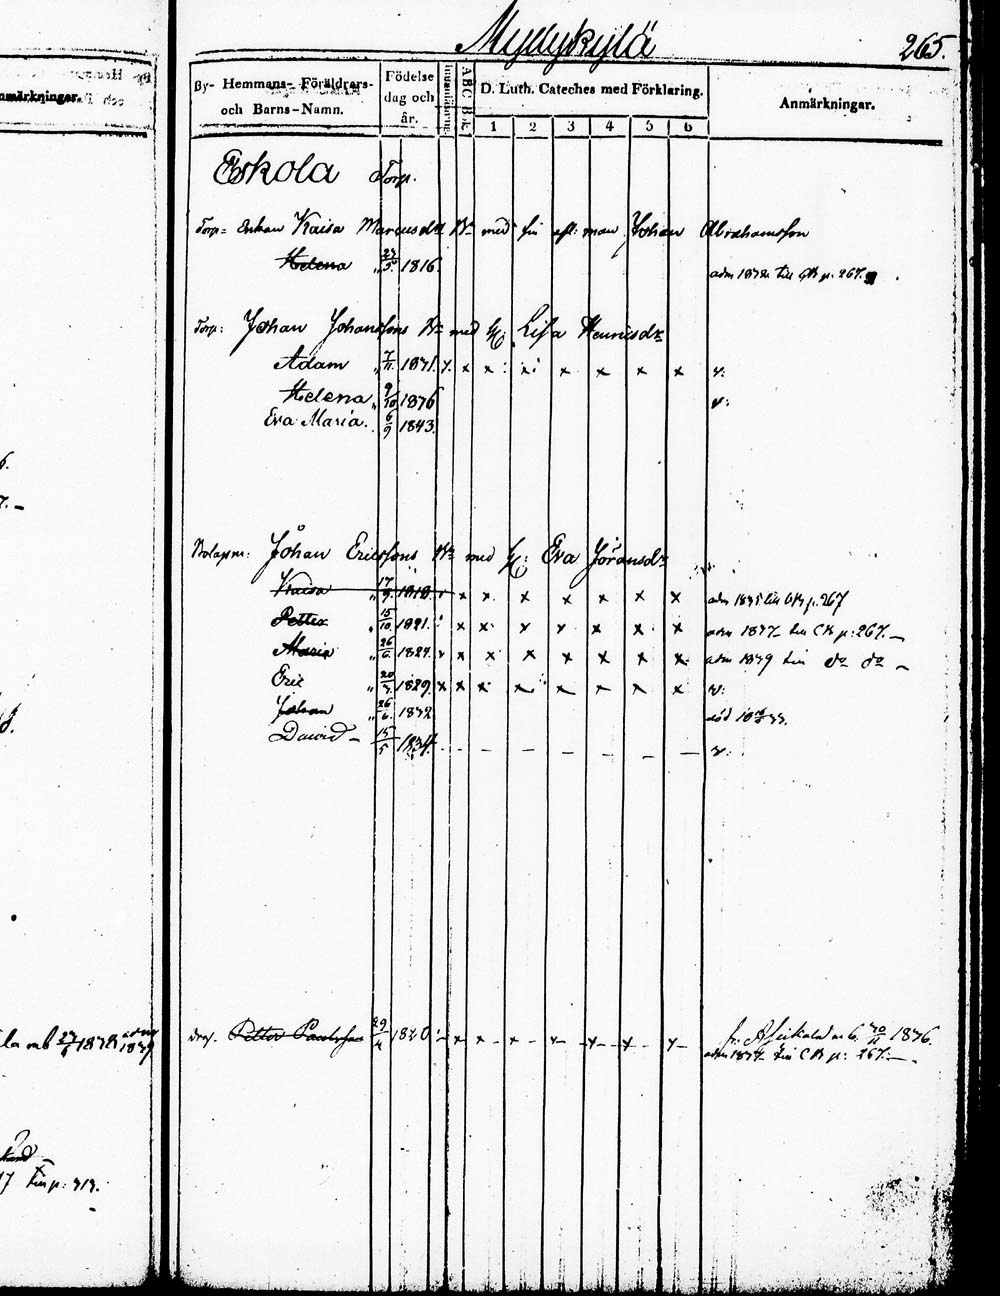 Myllykylä 265.
By- Hemmans- Föräldrars- och Barns-Namn.
Födelse dag och år.
Innanläsning
ABC Bok
D. Luth. Cateches med Förklaring.
1 2 3 4 5 6
Anmärkningar.
Eskola Torp.
Torp: Enkan Kaisa Marcusdr Bn med sin afl: man Johan Abrahamsson
Helena " 23/5 1816. adm till CB p. 267.
Torp: Johan Johanssons Bn med H: Lisa Henricsdr
Adam " 7/11 1831. x x x x x x x x v:
Helena " 9/10 1836 v:
Eva Maria. 6/9 1843.
Bolagsm: Johan Ericssons Bn med H: Eva Jöransdr
Kaisa " 17/9 1818. x x x x x x x adm 1835 till CB p. 267
Petter " 15/10 1821. x x x x x x x adm 1837 till CB p: 267. –
Maria " 26/6 1824. x x x x x x x adm 1839 till do do –
Eric " 20/3 1829. x x x x x x x x v:
Johan " 26/6 1832 död
David – 15/5 1834. – – – – – – v:
drg. Petter 29/4 1820 – x x x x x x x – fr. no 6. 1836.
adm 1837 till CB p: 267. –
Anmärkningar.
till p: 313.